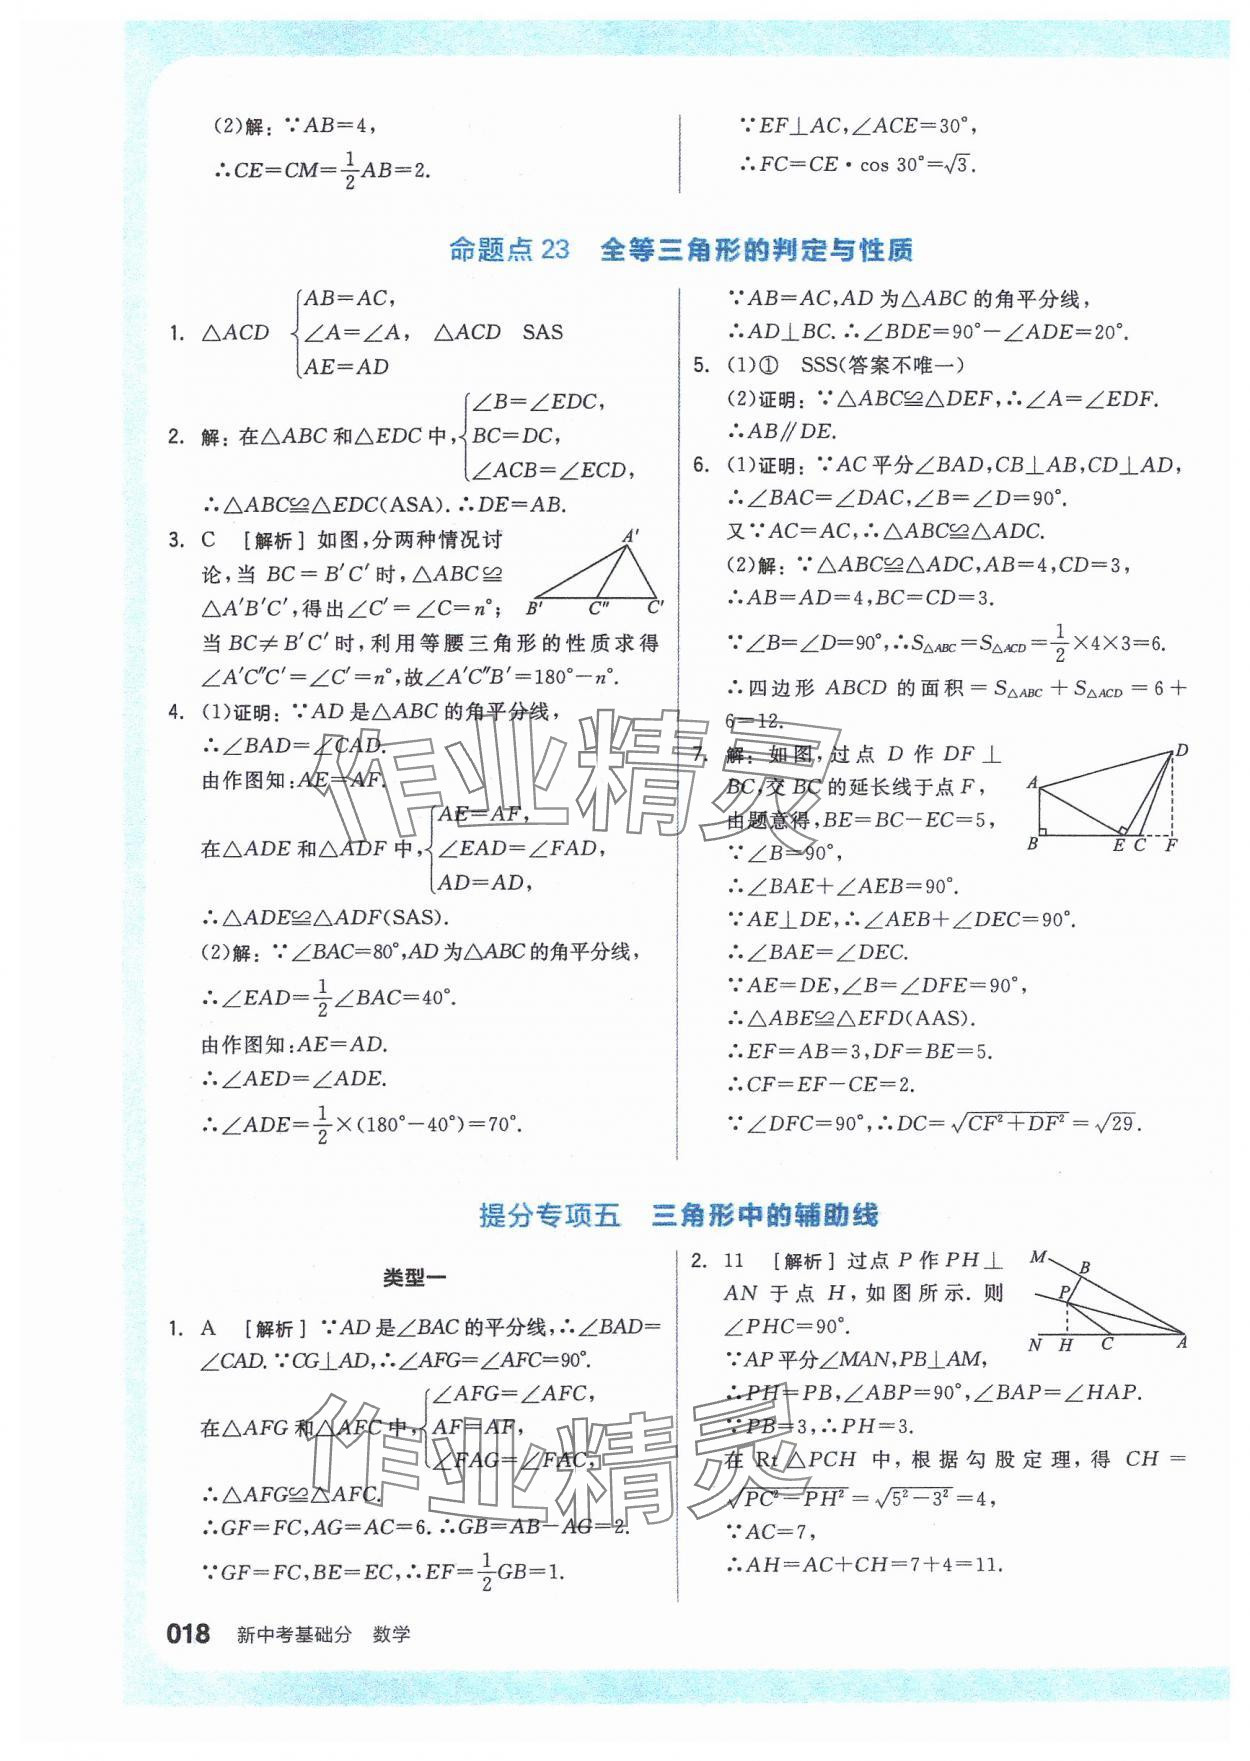 (2)解:∵AB=4,
∴CE=CM=1/2AB=2.
∵EF⊥AC,∠ACE=30°,
∴FC=CE·cos 30°=√3.
命题点 23 全等三角形的判定与性质
1. △ACD {AB=AC, ∠A=∠A, AE=AD △ACD SAS
2. 解:在△ABC 和△EDC 中,{∠B=∠EDC, BC=DC, ∠ACB=∠ECD,
∴△ABC≌△EDC(ASA).∴DE=AB.
3. C [解析] 如图,分两种情况讨
论,当 BC=B′C′时,△ABC≌
△A′B′C′,得出∠C′=∠C=n°;
当 BC≠B′C′时,利用等腰三角形的性质求得
∠A′C″C′=∠C′=n°,故∠A′C″B′=180°−n°.
A′
B′ C″ C′
4. (1)证明:∵AD 是△ABC 的角平分线,
∴∠BAD=∠CAD.
由作图知:AE=AF.
在△ADE 和△ADF 中,{AE=AF, ∠EAD=∠FAD, AD=AD,
∴△ADE≌△ADF(SAS).
(2)解:∵∠BAC=80°,AD 为△ABC 的角平分线,
∴∠EAD=1/2∠BAC=40°.
由作图知:AE=AD.
∴∠AED=∠ADE.
∴∠ADE=1/2×(180°−40°)=70°.
∵AB=AC,AD 为△ABC 的角平分线,
∴AD⊥BC.∴∠BDE=90°−∠ADE=20°.
5. (1)① SSS(答案不唯一)
(2)证明:∵△ABC≌△DEF,∴∠A=∠EDF.
∴AB∥DE.
6. (1)证明:∵AC 平分∠BAD,CB⊥AB,CD⊥AD,
∴∠BAC=∠DAC,∠B=∠D=90°.
又∵AC=AC,∴△ABC≌△ADC.
(2)解:∵△ABC≌△ADC,AB=4,CD=3,
∴AB=AD=4,BC=CD=3.
∵∠B=∠D=90°,∴S△ABC=S△ACD=1/2×4×3=6.
∴四边形 ABCD 的面积=S△ABC+S△ACD=6+
6=12.
7. 解:如图,过点 D 作 DF⊥
BC,交 BC 的延长线于点 F,
由题意得,BE=BC−EC=5,
∵∠B=90°,
∴∠BAE+∠AEB=90°.
∵AE⊥DE,∴∠AEB+∠DEC=90°.
∴∠BAE=∠DEC.
∵AE=DE,∠B=∠DFE=90°,
∴△ABE≌△EFD(AAS).
∴EF=AB=3,DF=BE=5.
∴CF=EF−CE=2.
∵∠DFC=90°,∴DC=√(CF²+DF²)=√29.
D
A
B E C F
提分专项五 三角形中的辅助线
类型一
1. A [解析] ∵AD 是∠BAC 的平分线,∴∠BAD=
∠CAD.∵CG⊥AD,∴∠AFG=∠AFC=90°.
在△AFG 和△AFC 中,{∠AFG=∠AFC, AF=AF, ∠FAG=∠FAC,
∴△AFG≌△AFC.
∴GF=FC,AG=AC=6.∴GB=AB−AG=2.
∵GF=FC,BE=EC,∴EF=1/2GB=1.
2. 11 [解析] 过点 P 作 PH⊥
AN 于点 H,如图所示.则
∠PHC=90°.
∵AP 平分∠MAN,PB⊥AM,
∴PH=PB,∠ABP=90°,∠BAP=∠HAP.
∵PB=3,∴PH=3.
在 Rt△PCH 中,根据勾股定理,得 CH=
√(PC²−PH²)=√(5²−3²)=4,
∵AC=7,
∴AH=AC+CH=7+4=11.
M B
P
N H C A
作业精灵
作业精灵
018 新中考基础分 数学